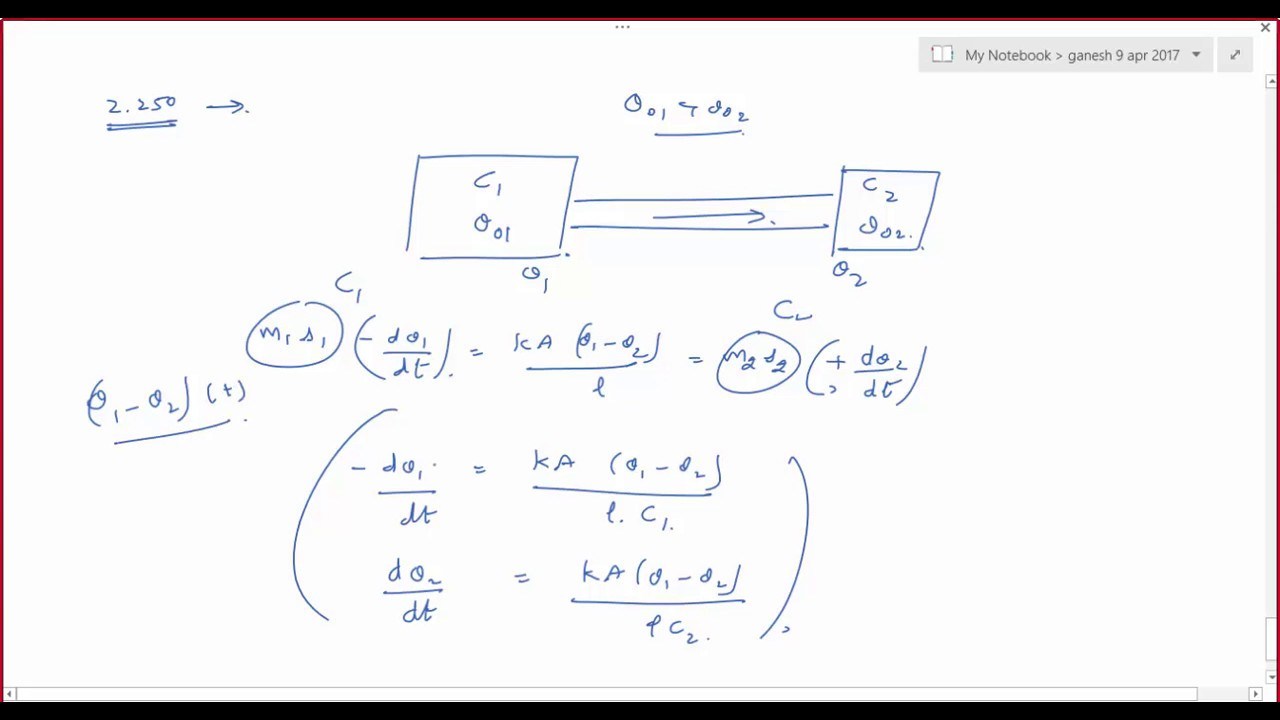 My Notebook > ganesh 9 apr 2017
2.250 →
θ01 > θ02
C1
θ01
C2
θ02.
θ1
θ2
C1
C2
m1 s1 (- dθ1/dt) = kA (θ1 - θ2)/l = m2 s2 (+ dθ2/dt)
(θ1 - θ2) (t)
- dθ1/dt = kA (θ1 - θ2)/l. C1.
dθ2/dt = kA (θ1 - θ2)/l C2.